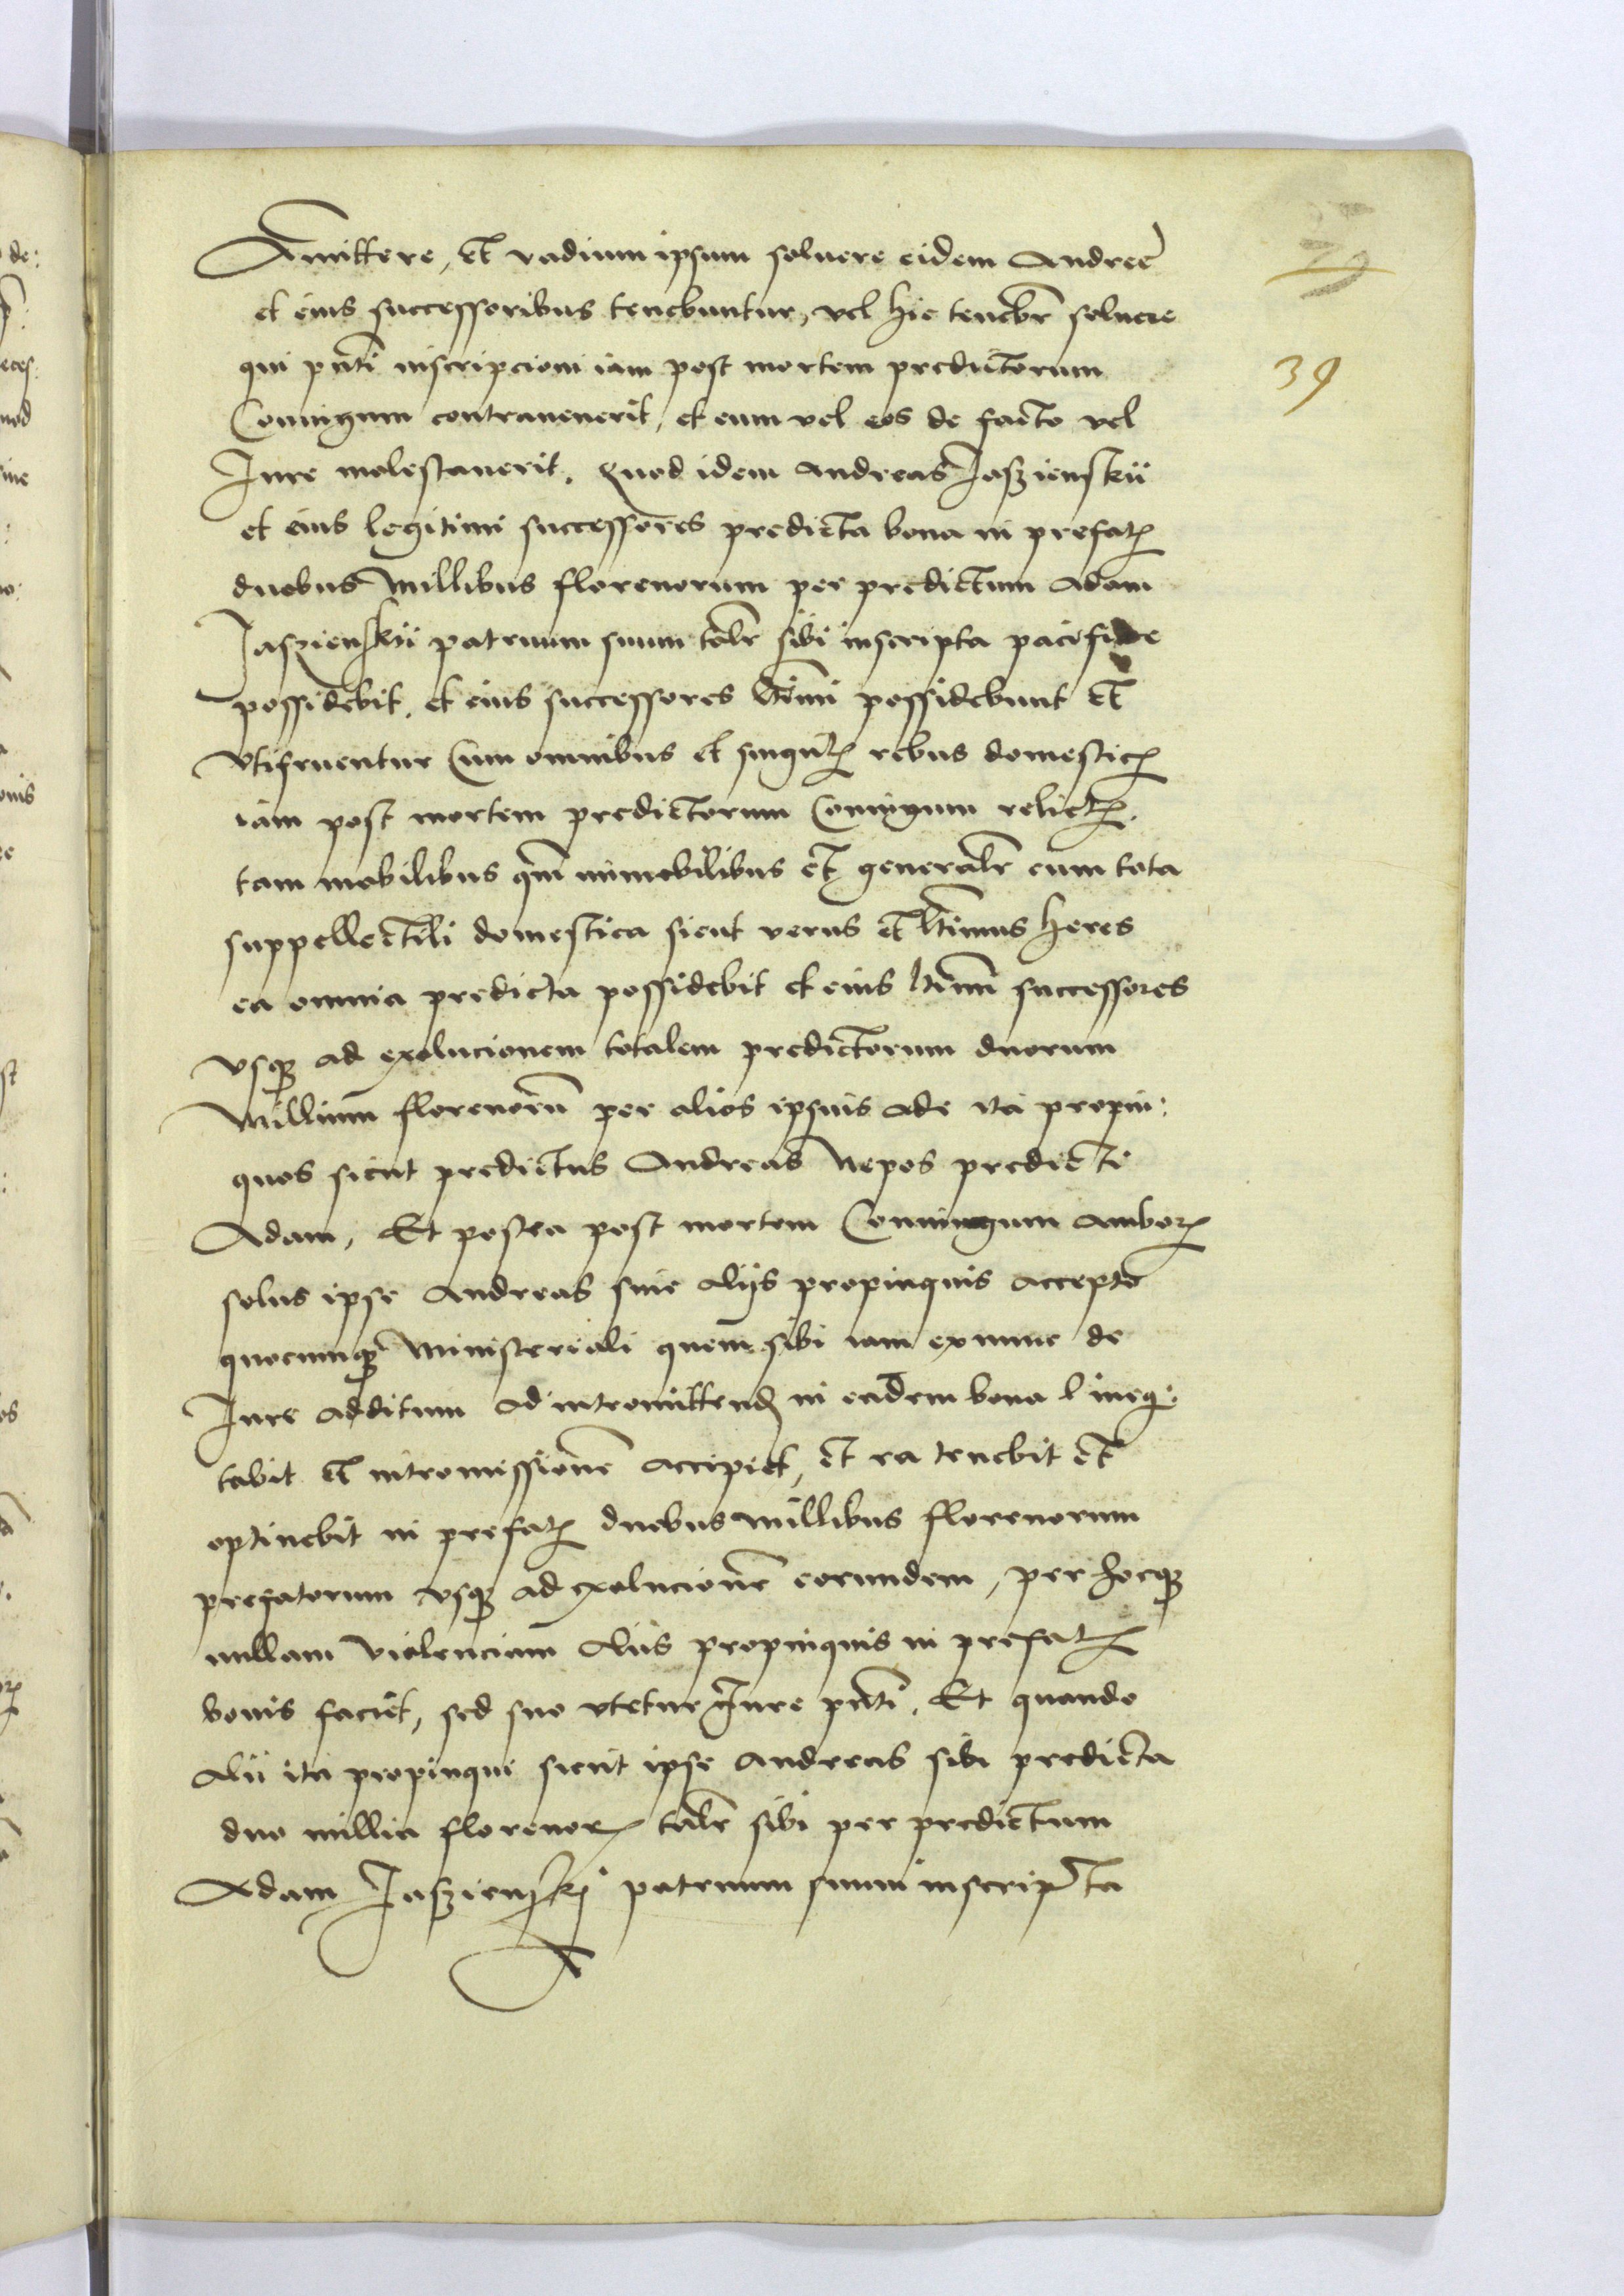 Amittere, et vadium ipsum soluere eidem Andree
et eius successoribus tenebuntur, vel hic tenebr̄ soluere
qui pn̄ti inscripcioni iam post mortem predictorum
Coniugum contrauenerit, et eum vel eos de facto vel
Iure molestauerit. Quod idem Andreas Jaszienskii
et eius legitimi successores predicta bona in prefatꝭ
duobus Millibus florenorum per predictum Adam
Jaszienskii patruum suum talr̄ sibi inscripta pacifice
possidebit, et eius successores ltīmi possidebunt et
vtifruentur Cum omnibus et singulꝭ rebus domesticꝭ
iam post mortem predictorum Coniugum relictꝭ.
tam mobilibus qm̄ immobilibus et generalr̄ cum tota
suppellectili domestica sicut verus et ltīmus heres
ea omnia predicta possidebit et eius ltīmi successores
vsqꝫ ad exolucionem totalem predictorum duorum
Millium florenorū per alios ipsius Ade ita propin:
quos sicut predictus Andreas Nepos predicti
Adam, Et postea post mortem Coniugum amborꝫ
solus ipse Andreas siue alijs propinquis accepto
quocumqꝫ Ministeriali quem sibi iam exnunc de
Iure additum ad intromittendꝫ in eadem bona
tabit et intromissionē accipiet, et ea tenebit et
optinebit in prefatꝭ duobus millibus florenorum
prefatorum vsqꝫ ad exolucionē eorundem, per hocqꝫ
nullam violenciam aliis propinquis in prefatꝭ
bonis faciet, sed suo vtetur Iure pn̄ti. Et quando
alii ita propinqui sicut ipse Andreas sibi predicta
duo millia florenorꝫ talr̄ sibi per predictum
Adam Jaszienskj patruum suum inscripta
39